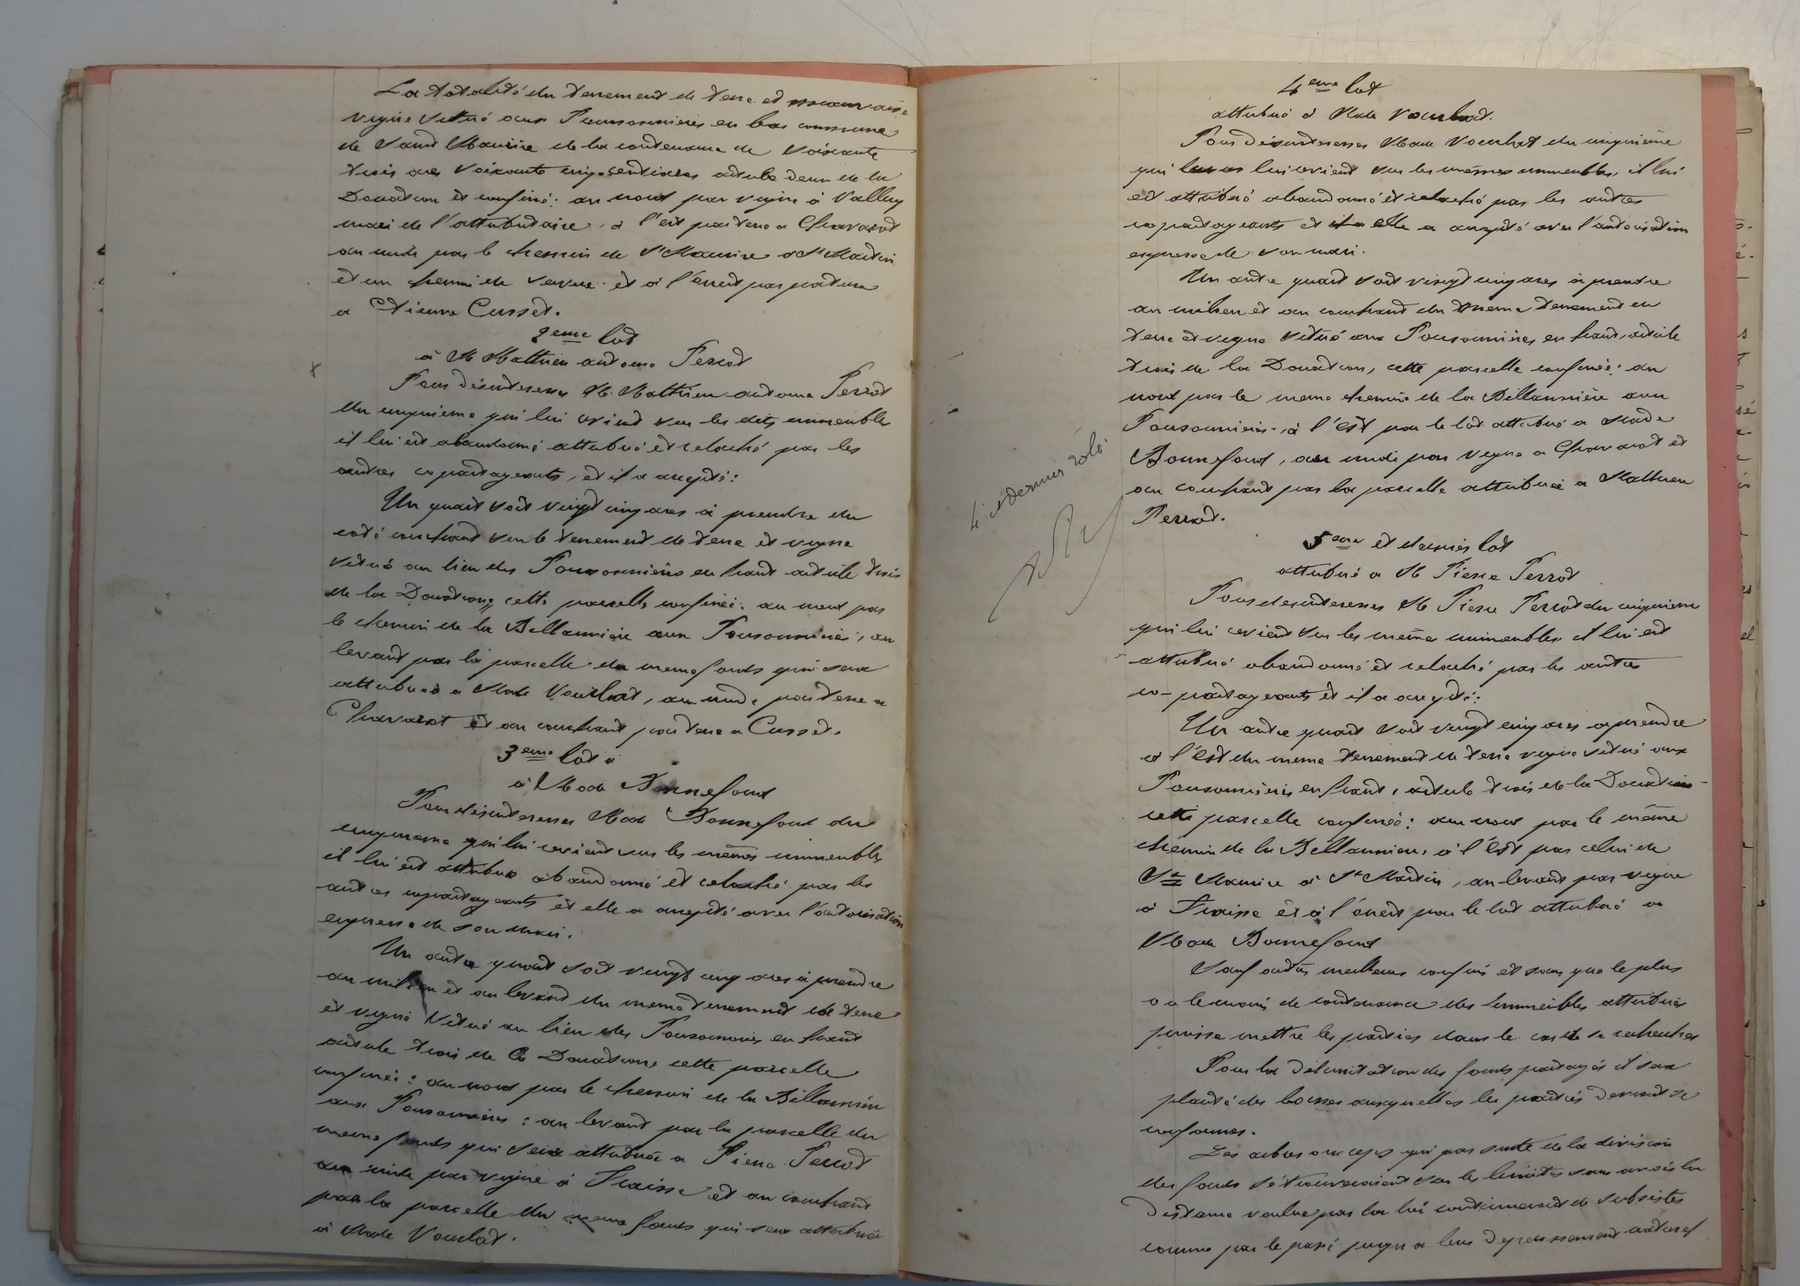 La totalité du tenement de terre et mauvaise
vigne situé aux Poussonnières en bas commune
de Saint Maurice de la contenance de soixante
trois ares soixante cinq centiares article deux de la
Donation et confiné: au nord par vigne à Valluy
mari de l'attributaire, à l'est par terre a Chavarot
au midi par le chemin de St Maurice a St Martin
et un chemin de serve et à l'ouest par pature
a Etienne Cusset.
2eme lot
à M Matthieu antoine Perrot
Pour désinteresser M. Matthieu antoine Perrot
du cinquieme qui lui revient sur les dits immeubles
il lui est abandonné attribué et relaché par les
autres copartageants, et il a accepté:
Un quart soit vingt cinq ares à prendre du
coté couchant sur le tenement de terre et vigne
situé au lieu des Poussonnières en haut article trois
de la Donation, cette parcelle confinée: au nord par
le chemin de la Billannière aux Poussonnières, au
levant par la parcelle du meme fonds qui sera
attribuée a Made Vourlat, au midi par terre a
Chavarot et au couchant par terre a Cusset.
3eme lot à
à Made Bonnefont
Pour désinteresser Made Bonnefont du
cinquieme qui lui revient sur les mêmes immeubles
il lui est attribué abandonné et relaché par les
autres copartageants et elle a accepté avec l'autorisation
expresse de son mari.
Un autre quart soit vingt cinq ares à prendre
au milieu et au levant du meme tenement de terre
et vigne situé au lieu des Poussonnières en haut
article trois de la Donation cette parcelle
confinée: au nord par le chemin de la Billannière
aux Poussonnières: au levant par la parcelle du
meme fonds qui sera attribuée a Pierre Perrot
au midi par vigne à Fraisse et au couchant
par la parcelle du meme fonds qui sera attribuée
à Made Vourlat.
4eme lot
attribué à Made Vourlat.
Pour désinteresser Made Vourlat du cinquième
qui lui revient sur les mêmes immeubles, il lui
est attribué abandonné et relaché par les autres
copartageants et elle a accepté avec l'autorisation
expresse de son mari.
Un autre quart soit vingt cinq ares à prendre
au milieu et au couchant du meme tenement en
terre et vigne situé aux Poussonnières en haut, article
trois de la Donation, cette parcelle confinée: au
nord par le meme chemin de la Billannière aux
Poussonnières, à l'est par le lot attribué a Made
Bonnefont, au midi par vigne a Chavarot et
au couchant par la parcelle attribuée a Mathieu
Perrot.
4e et dernier rôle.
5eme et dernier lot
attribué a M Pierre Perrot
Pour désinteresser M Pierre Perrot du cinquieme
qui lui revient sur les même immeubles il lui est
attribué abandonné et relaché par les autres
co-partageants et il a accepté:
Un autre quart soit vingt cinq ares a prendre
à l'est du meme tenement de terre vigne situé aux
Poussonnières en haut, article trois de la Donation
cette parcelle confinée: au nord par le même
chemin de la Billannière, à l'est par celui de
St Maurice à St Martin, au levant par vigne
à Fraisse et à l'ouest par le lot attribué a
Made Bonnefont
Sauf autres meilleurs confins et sans que le plus
ou le moins de contenance des immeubles attribués
puisse mettre les parties dans le cas de se rechercher
Pour la délimitation des fonds partagés il sera
planté des bornes auxquelles les parties devront se
conformer.
Les arbres ou ceps qui par suite de la division
des fonds se trouveraient sur les limites sans avoir la
distance voulue par la loi continueront de subsister
comme par le passé jusqu'a leur dépérissement naturel